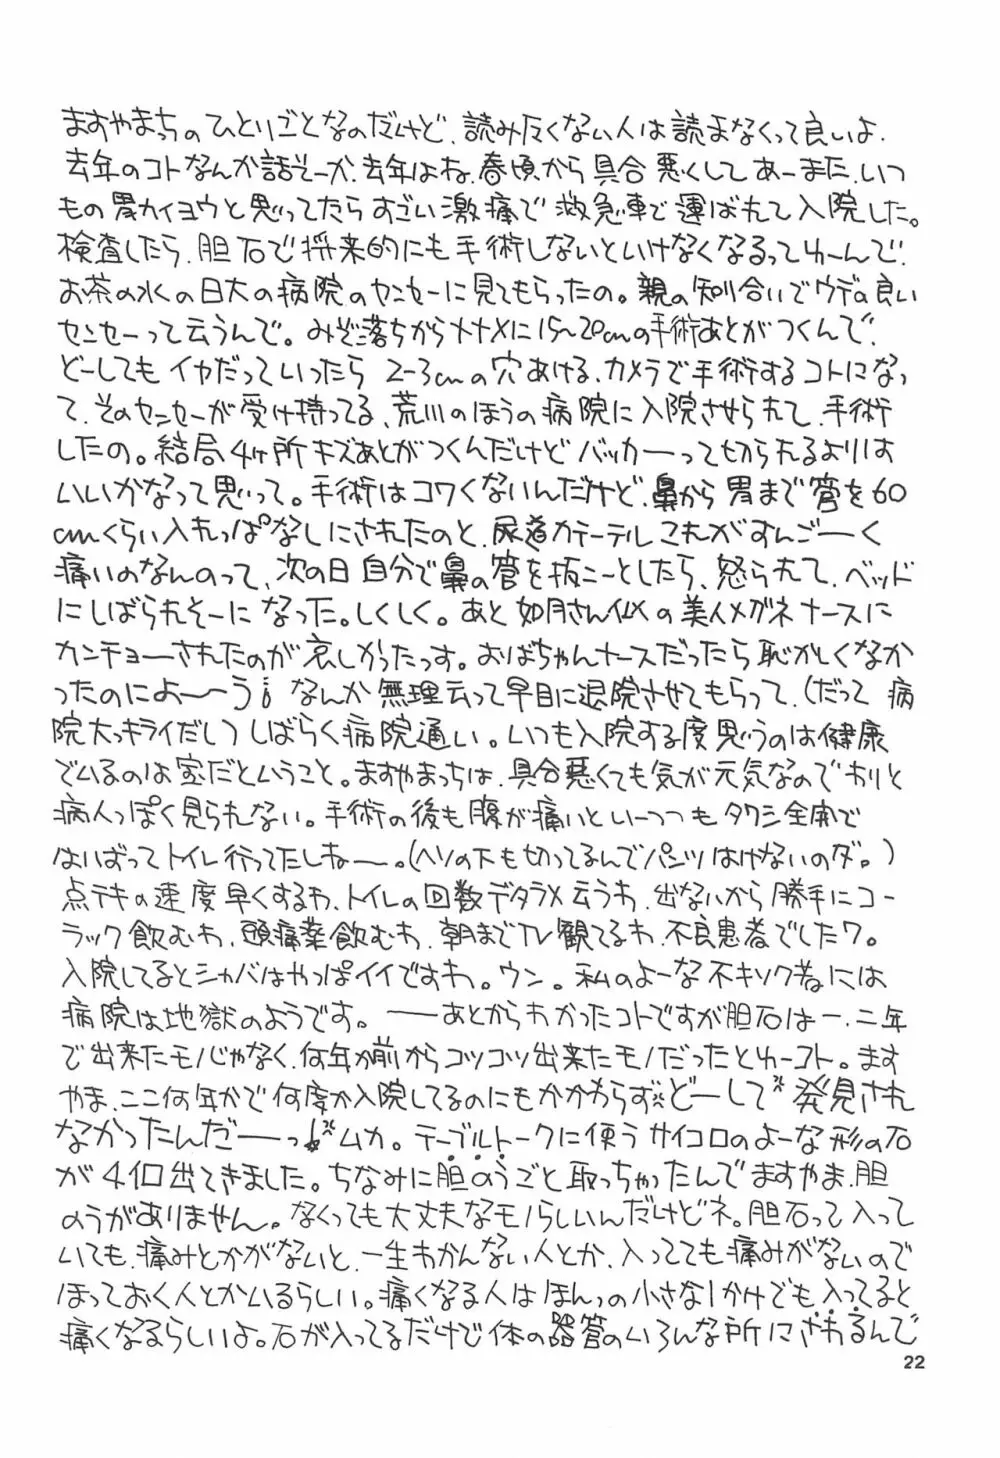 ますやまっちのひとりごとなのだけど、読みたくない人は読まなくって良いよ.
去年のコトなんか話そーか、去年はね、春頃から具合悪くしてあーまた、いつ
もの胃カイヨウと思ってたらすごい激痛で救急車で運ばれて入院した。
検査したら、胆石で将来的にも手術しないといけなくなるってゆーんで、
お茶の水の日大の病院のセンセーに見てもらったの。親の知り合いでウデの良い
センセーって云うんで。みぞ落ちからナナメに15~20cmの手術あとがつくんで、
どーしてもイヤだっていったら 2-3cmの穴あける、カメラで手術するコトになっ
て、そのセンセーが受け持ってる、荒川のほうの病院に入院させられて、手術
したの。結局4ヶ所キズあとがつくんだけどバッカーーって切られるよりは
いいかなって思って。手術はコワくないんだけど、鼻から胃まで管を60
cmくらい入れっぱなしにされたのと、尿道カテーテルこれがすんごーーく
痛いのなんのって、次の日自分で鼻の管を抜こーとしたら、怒られて、ベッド
にしばられそーになった。しくしく。あと如月さん似の美人メガネナースに
カンチョーされたのが哀しかったっす。おばちゃんナースだったら恥かしくなか
ったのによ〜〜う!なんか無理云って早目に退院させてもらって、(だって病
院大っキライだし)しばらく病院通い。いつも入院する度思うのは健康
でいるのは宝だということ。ますやまっちは、具合悪くても気が元気なのでわりと
病人っぽく見られない。手術の後も腹が痛いといーつつもタクシ全開で
はいばってトイレ行ってたしねー。(ヘソの下も切ってるんでパンツはけないのダ。)
点テキの速度早くするわ、トイレの回数デタラメ云うわ、出ないから勝手にコー
ラック飲むわ、頭痛薬飲むわ、朝までTV観てるわ、不良患者でしたワ。
入院してるとシャバはやっぱイイですわ。ウン。私のよーな不キソク者には
病院は地獄のようです。——あとからわかったコトですが胆石は一、二年
で出来たモノじゃなく、何年か前からコツコツ出来たモノだったとゆーコト。ます
やま、ここ何年かで何度か入院してるのにもかかわらず、どーして発見され
なかったんだーーっ!ムカ。テーブルトークに使うサイコロのよーな形の石
が4個出てきました。ちなみに胆のうごと取っちゃったんでますやま、胆
のうがありません。なくっても大丈夫なモノらしいんだけどネ。胆石って入って
いても、痛みとかがないと、一生わかんない人とか、入ってても痛みがないので
ほっておく人とかいるらしい。痛くなる人はほんの小さな1かけでも入ってると
痛くなるらしいよ。石が入ってるだけで体の器管のいろんな所にさわるんで
22